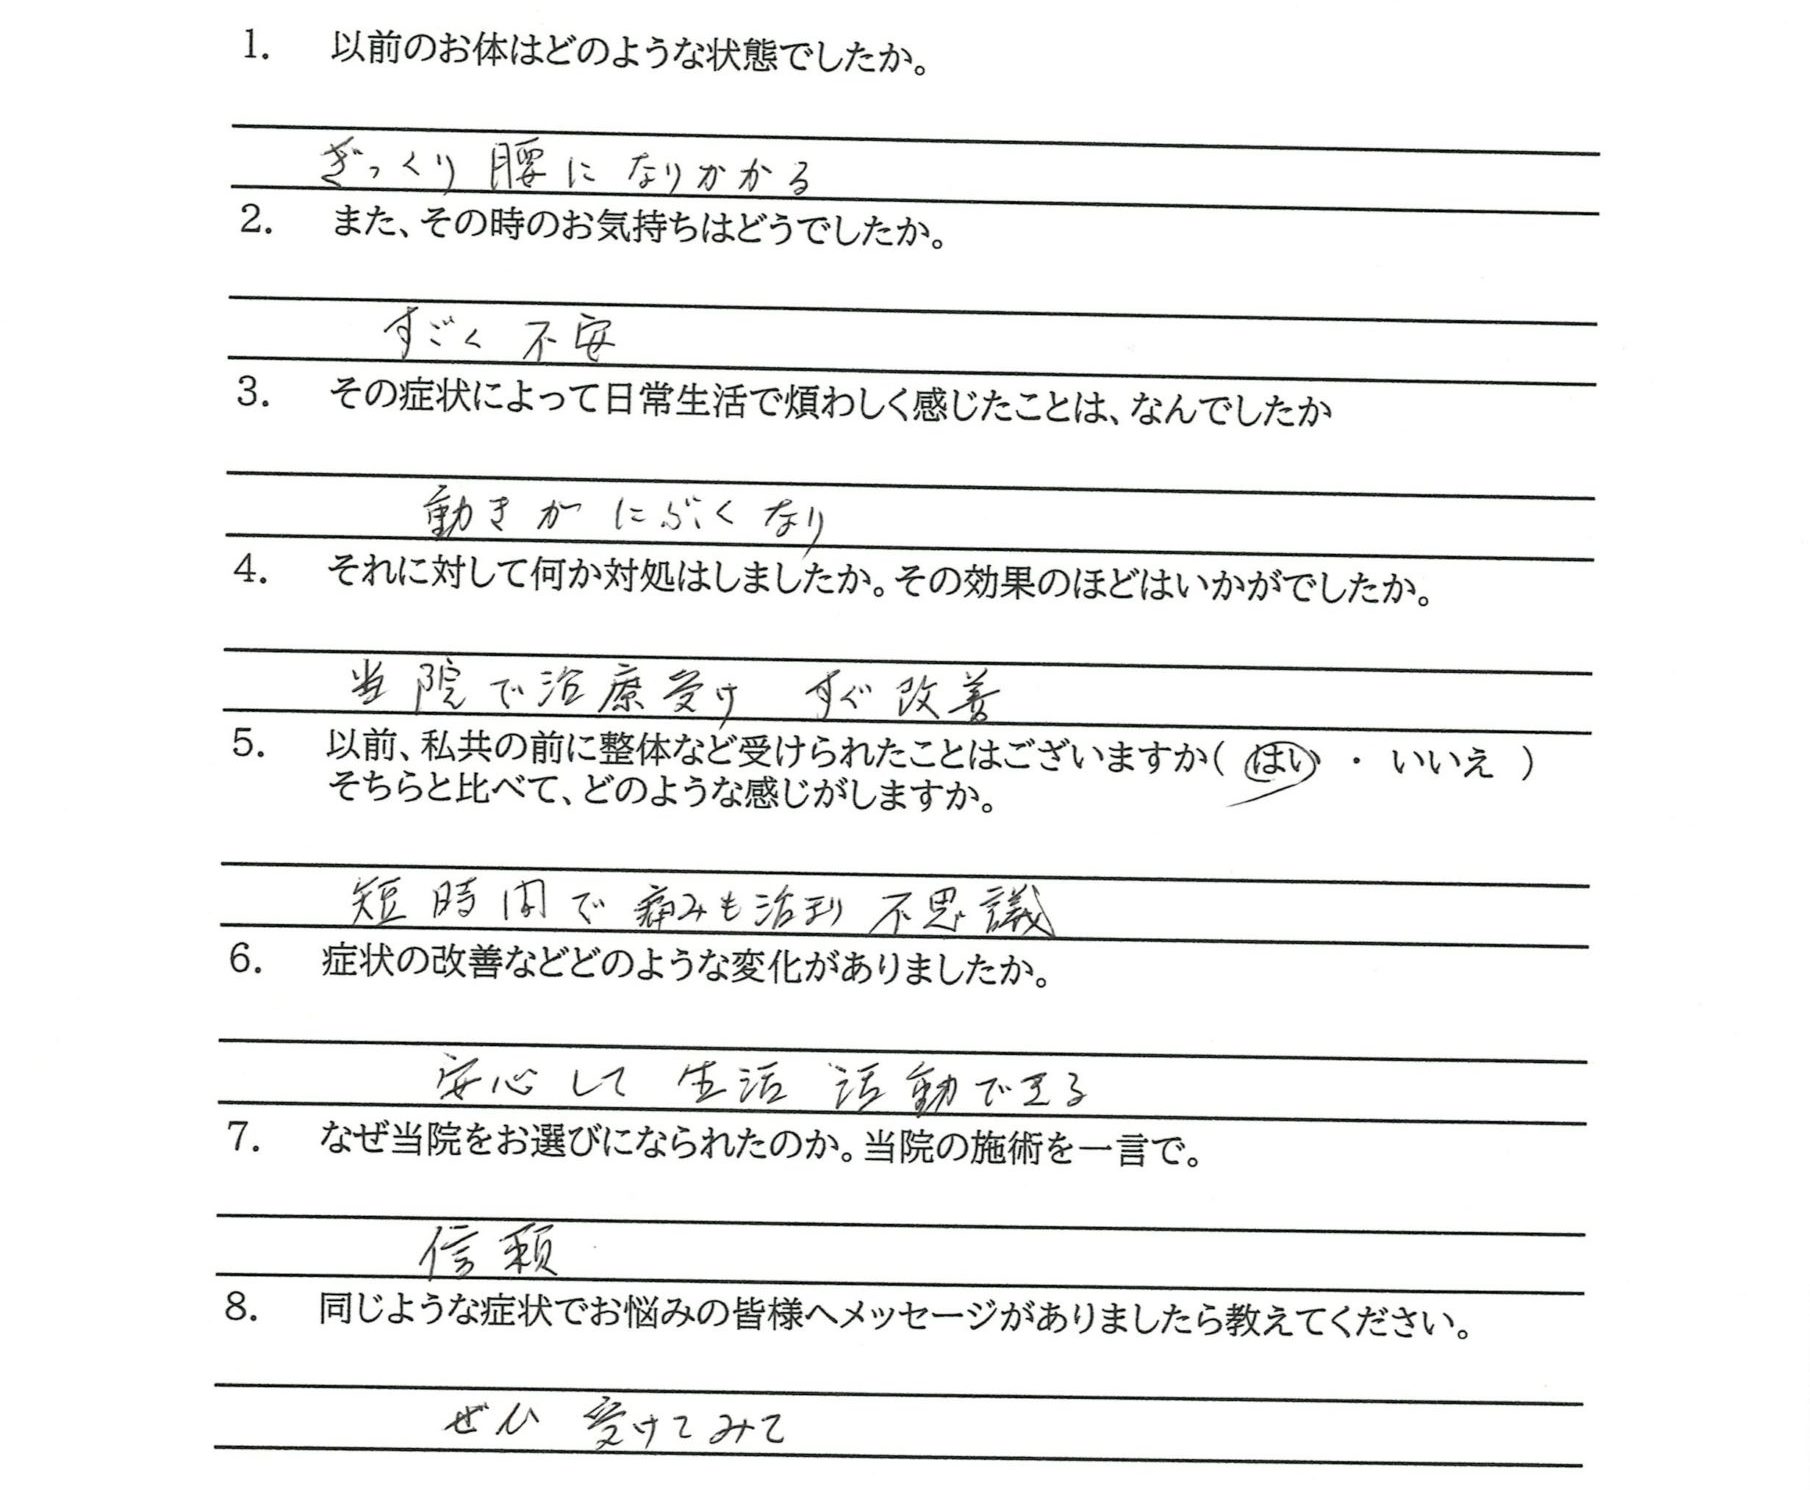 1. 以前のお体はどのような状態でしたか。
ぎっくり腰になりかかる
2. また、その時のお気持ちはどうでしたか。
すごく 不安
3. その症状によって日常生活で煩わしく感じたことは、なんでしたか
動きが にぶくなり
4. それに対して何か対処はしましたか。その効果のほどはいかがでしたか。
当院で治療受け すぐ改善
5. 以前、私共の前に整体など受けられたことはございますか( はい ・ いいえ )
そちらと比べて、どのような感じがしますか。
短時間で 痛みも治まり 不思議
6. 症状の改善などどのような変化がありましたか。
安心して 生活 活動できる
7. なぜ当院をお選びになられたのか。当院の施術を一言で。
信頼
8. 同じような症状でお悩みの皆様へメッセージがありましたら教えてください。
ぜひ 受けてみて